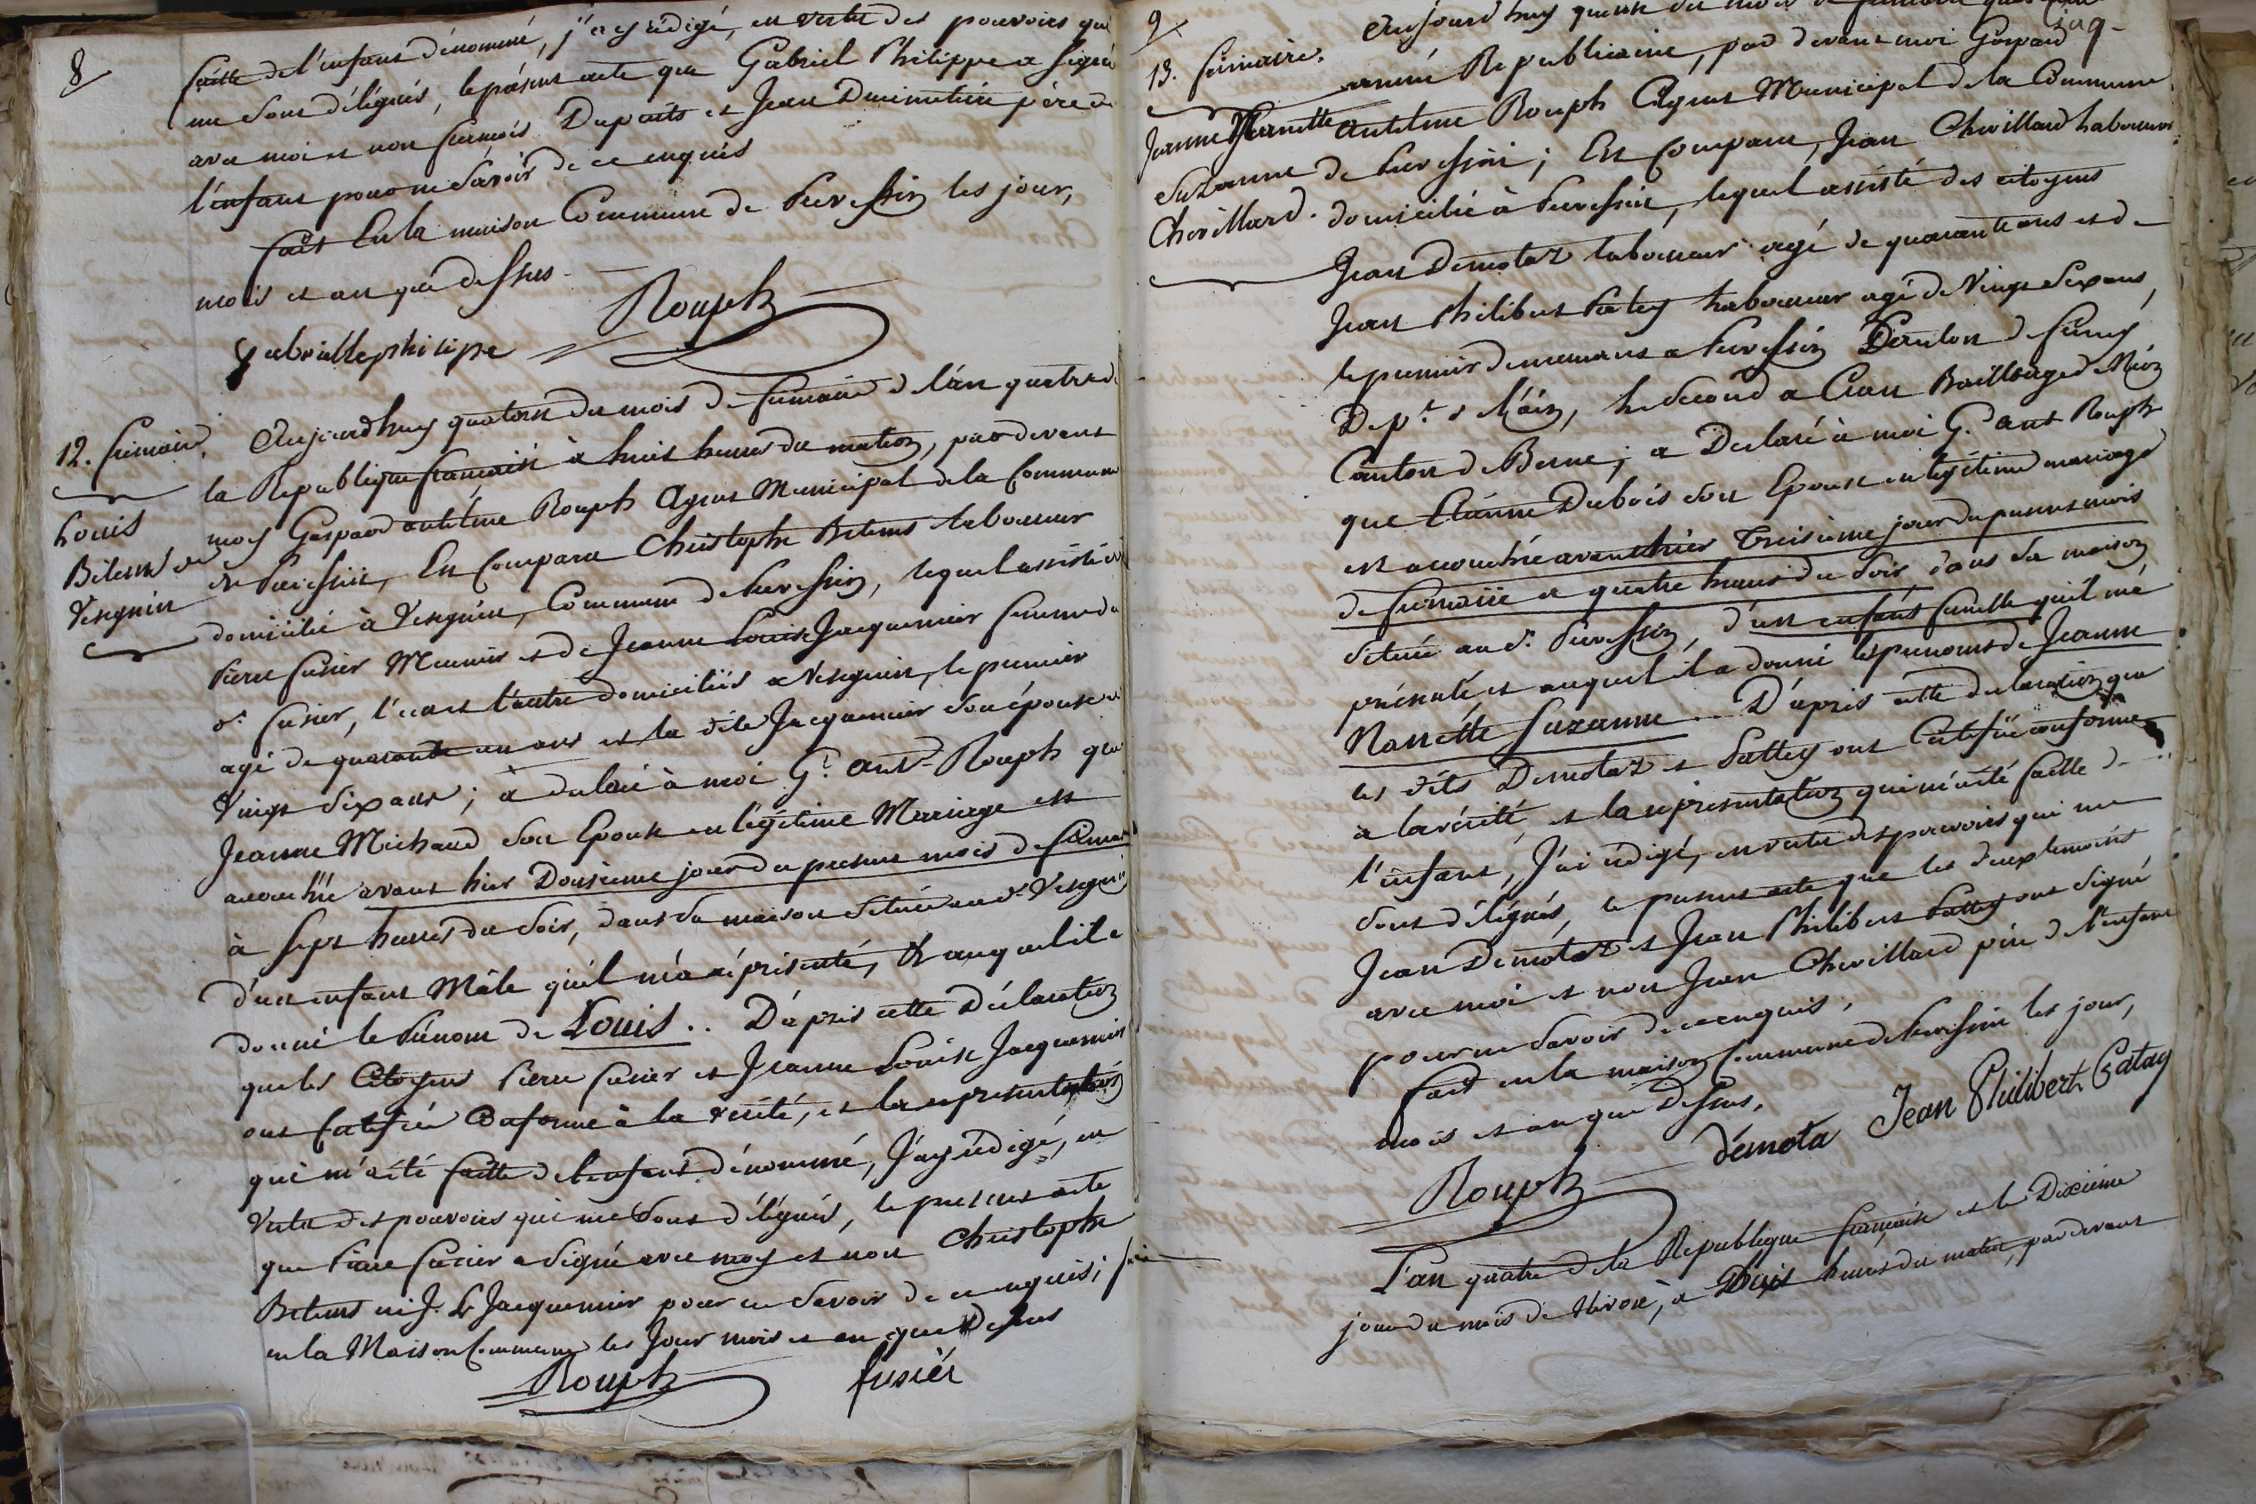 8
faitte de l'enfant dénommé, j'ay rédigé, en vertu des pouvoirs qui
me sont délégués, le présent acte que Gabriel Philippe a signé
avec moi et non François Dupuits et Jean Dumimetière père de
l'enfant pour ne savoir de ce enquis
fait En la maison Commune de Prevessin les jour,
mois et an que dessus
Rouph
gabriellephilipe
12. frimaire.
Louis
Bétems de
Vesegnin
Aujourdhuy quatorse du mois de frimaire de l'an quatre de
la Republique française à huit heures du matin, pardevant
moy Gaspard antelme Rouph Agent Municipal de la Commune
de Prevessin, Est Comparu Christophe Betems laboureur
domicilié à Vesegnin, Commune de Prevessin, lequel assisté de
Pierre fusier Meunier et de Jeanne Louise Jacquemier femme du
d. fusier, l'un et l'autre domiciliés a Vesegnin, le premier
agé de quarante un ans et la dite Jacquemier son épouse de
Vingt six ans; à declaré à moi G. ant. Rouph que
Jeanne Michaud son Epouse en légitime Mariage est
accouchée avant hier Dousieme jour du present mois de frimaire
à sept heures du soir, dans sa maison située au d. Vesegnin
d'un enfant Mâle qu'il m'a réprésenté, & auquel il a
donné le Prénom de Louis.. D'apris cette Déclaration
que les Citoyens Pierre fusier et Jeanne Louise Jacquemier
ont Certifiée Conforme à la vérité, et la representation
qui m'a été faitte de l'enfant dénommé, J'ay rédigé, en
vertu des pouvoirs qui me sont délégués, le present acte
que Pierre fusier a signé avec moy et non Christophe
Betems ni J. L. Jacquemier pour ne savoir de ce enquis; fait
en la Maison Commune les Jour mois et an que dessus
Rouph fusiér
9
13. frimaire.
Jeanne Nannette
Suzanne
Chevillard.
Aujourd'huy quinse du mois de frimaire
année Republicaine, par devant moi Gaspard
Antelme Rouph Agent Municipal de la Commune
de Prevessin; Est Comparu, Jean Chevillard laboureur
domicilié à Prevessin, lequel assisté des citoyens
Jean Demotaz laboureur agé de quarante ans et de
Jean Philibert Patey laboureur agé de Vingt six ans,
le premier demeurant a Prevessin Canton de ferney
Dep.t de l'ain, le second a Cran Baillage de Nion
Canton de Berne; a Declaré à moi G. ant Rouph
que Etienne Dubois son Epouse en légitime mariage
est accouchée avant hier treisieme jour du present mois
de frimaire a quatre heures du soir dans sa maison
située au d. Prevessin, d'un enfant femelle qu'il m'a
présenté et auquel il a donné les prenoms de Jeanne
Nanétte Suzanne.. D'après cette declaration que
les dits Demotaz et Pattey ont Certifiée conforme
a la vérité, et la représentation qui m'a été faitte de
l'enfant, J'ai rédigé, en vertu des pouvoirs qui me
sont délégués, le present acte que les deux temoins
Jean Demotaz et Jean Philibert Pattey ont signé
avec moi et non Jean Chevillard père de l'enfant
pour ne savoir de ce enquis,
fait en la maison Commune de Prevessin les jour,
mois et an que Dessus,
Rouph démota Jean Philibert Patay
L'an quatre de la Republique française et le Dixieme
jour du mois de Nivose, a Dix heures du matin, par devant